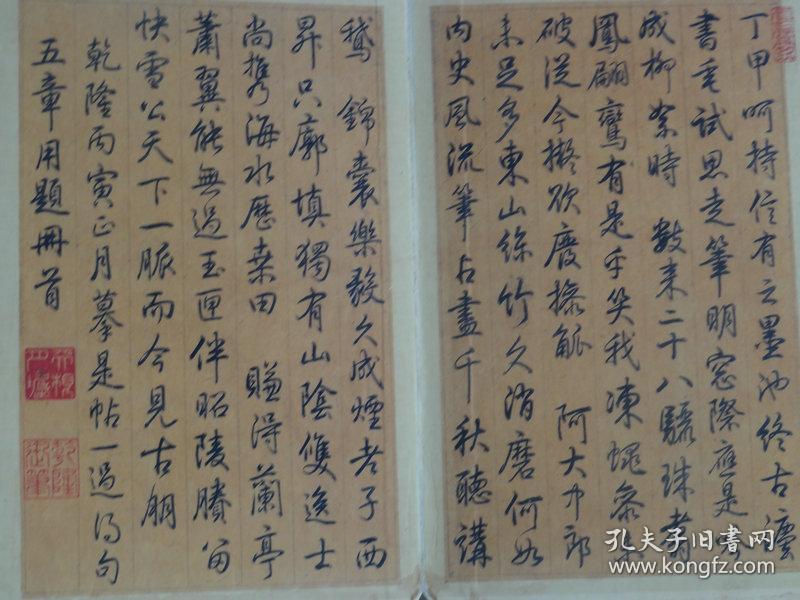 丁甲呵持信有之墨池終古
書毫試思走筆明窗際應是
成柳絮時 數来二十八驪珠翥
鳳翩鸞有是乎笑我凍蠅參不
破從今擬欲廢操觚 阿大中郎
未足多東山絲竹久消磨何如
内史風流筆占盡千秋聽講
鵝 錦囊樂毅久成煙老子西
昇只廓填獨有山陰雙逸士
尚攜海水歷桑田 賺得蘭亭
蕭翼能無過玉匣伴昭陵賸留
快雪公天下一脈而今見古朋
乾隆丙寅正月摹是帖一過得句
五章用題冊首
乾隆御筆
孔夫子旧書网
www.kongfz.com